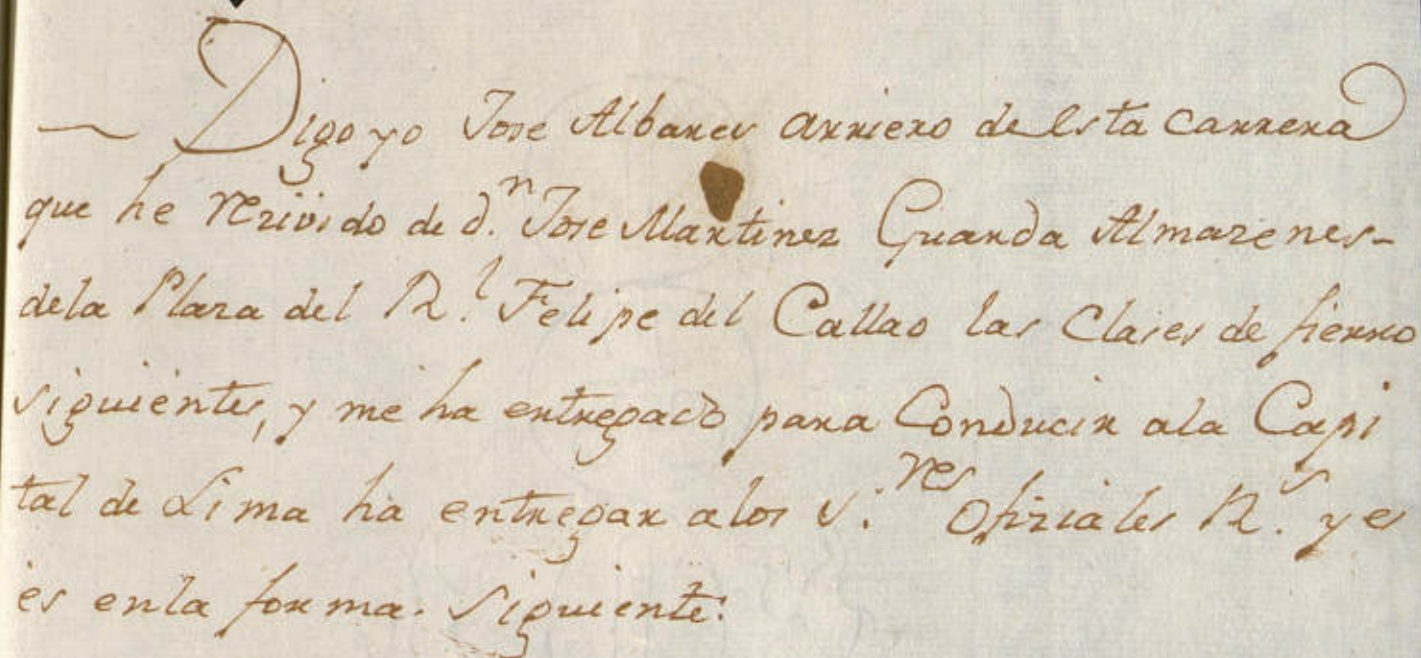 Digo yo Jose Albares arriero de esta carrera
que he rezivido de d.n Jose Martinez Guarda Almazenes-
dela Plaza del R.l Felipe del Callao las Clases de fierro
siguientes, y me ha entregado para Conducir ala Capi
tal de Lima ha entregar alos S.res Ofiziales R.s y es
es enla forma. Siguiente: